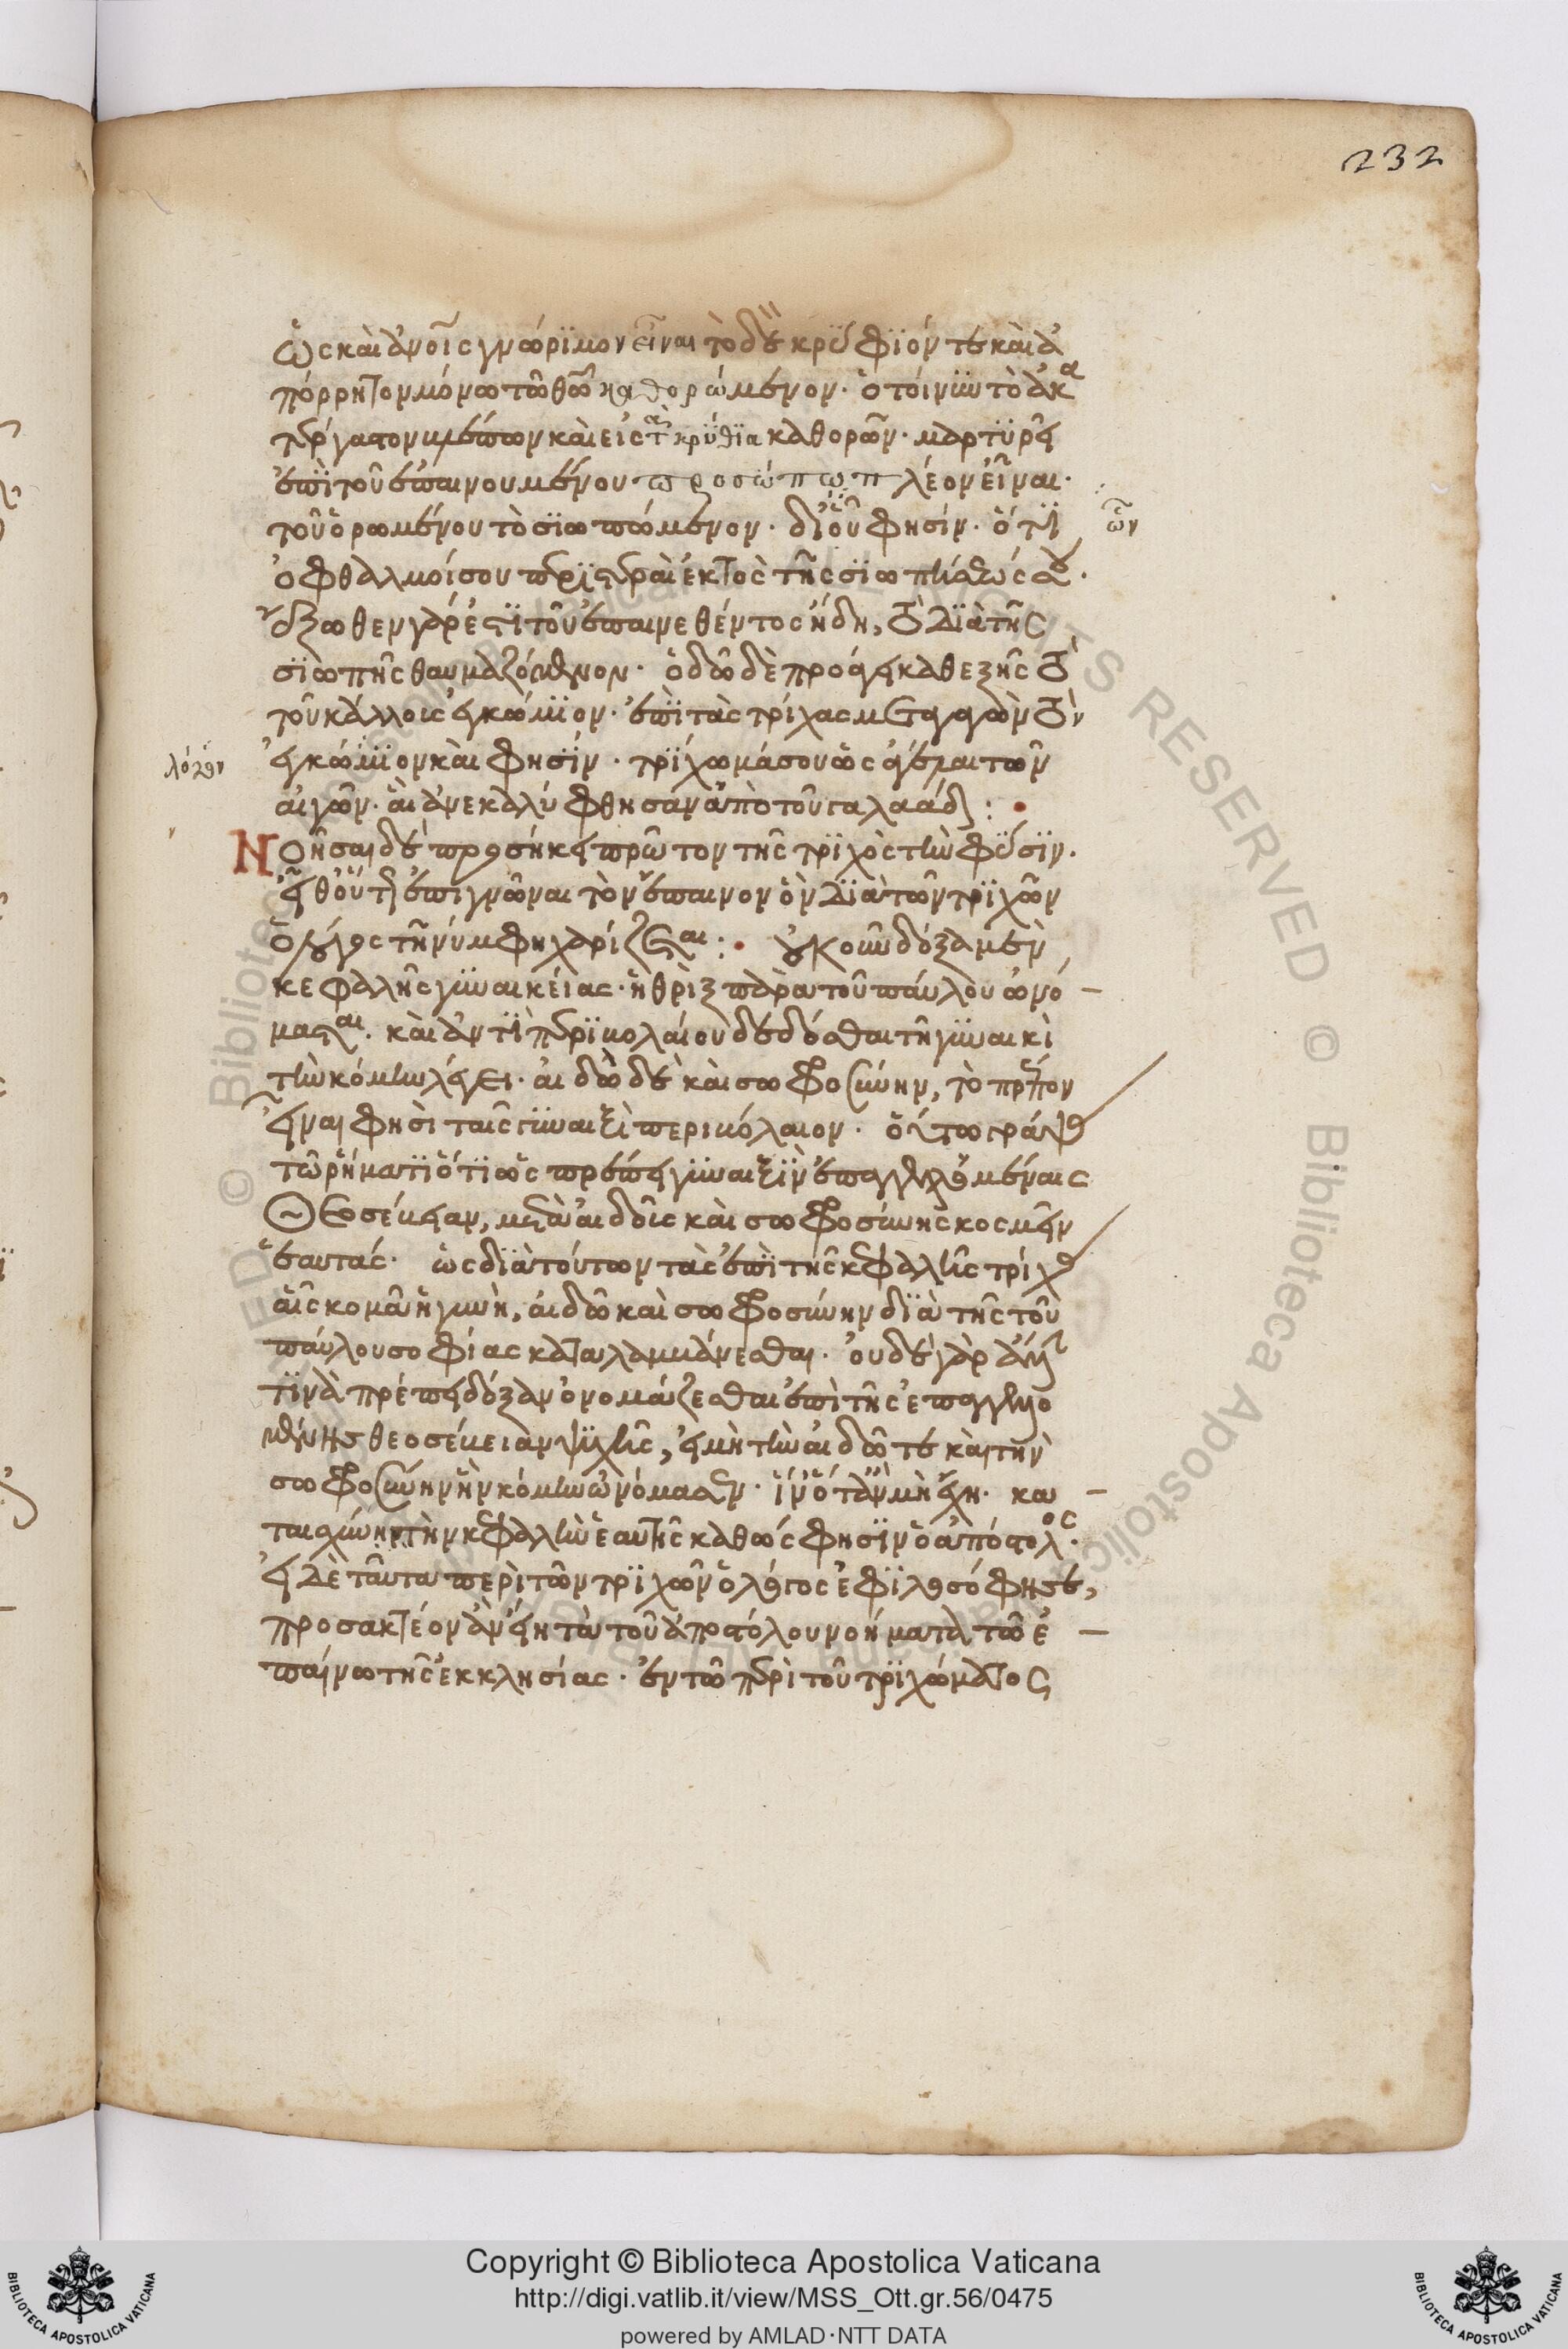 232
ὡς καὶ ἀνοις γνώριμον εἶναι τὸ δὲ κρύφιόν τε καὶ ἀ
πόρρητον μόνω τῶ θῶ καθορώμενον· ὁ τοίνυν τὸ ἀκα
τέργαστον βλέπων καὶ εἰς τὰ κρύφια καθορῶν· μαρτυρεῖ
ἐπὶ τοῦ ἐπαινουμένου προσώπω πλέον εἶναι·
τοῦ ὁρωμένου τὸ σιωπώμενον· δι' οὗ φησίν· ὅτι ὧν
ὀφθαλμοί σου περιστεραὶ ἐκτὸς τῆς σιωπήσεώς σου·
ἔξωθεν γάρ ἐστι τοῦ ἐπαινεθέντος ἤδη, τὸ διὰ τῆς
σιωπῆς θαυμαζόμενον· ὁδῶ δὲ προάγει καθεξῆς τὸ
τοῦ κάλλους ἐγκώμιον· ἐπὶ τὰς τρίχας μεταγαγὼν τὸν
λόγον ἐγκώμιον καὶ φησίν· τρίχωμά σου ὡς ἀγέλαι τῶν
αἰγῶν· αἳ ἀνεκαλύφθησαν ἀπὸ τοῦ γαλαάδ:
Νοῆσαι δὲ προσήκει πρῶτον τῆς τριχὸς τὴν φύσιν·
εἶθ' οὕτως ἐπιγνῶναι τὸν ἔπαινον ὃν διὰ τῶν τριχῶν
ὁ λόγος τῆ νύμφη χαρίζεται: οὐκοῦν δόξα μὲν
κεφαλῆς γυναικείας· ἡ θρὶξ παρα τοῦ παύλου ὠνό
μασται· καὶ ἀντὶ περιβολαίου δεδόσθαι τῆ γυναικὶ
τὴν κόμην λέγει· αἰδῶ δὲ καὶ σωφροσύνην, τὸ πρέπον
εἶναι φησὶ ταῖς γυναιξὶ περιβόλαιον· οὕτω γράψας
τῶ ῥήματι ὅτι ὡς πρέπει γυναιξὶν ἐπαγγελλομέναις
Θεοσέβειαν, μετὰ αἰδοῦς καὶ σωφροσύνης κοσμεῖν
ἑαυτάς· ὡς διὰ τούτων τὰς ἐπὶ τῆς κεφαλῆς τρίχας
αἷς κομᾶ ἡ γυνὴ, αἰδῶ καὶ σωφροσύνην διὰ τῆς τοῦ
παύλου σοφίας καταλαμβάνεσθαι· οὐδὲ γὰρ ἄλλην
τινὰ πρέπει δόξαν ὀνομάζεσθαι ἐπὶ τῆς ἐπαγγελλο
μένης θεοσέβειαν ψυχῆς, εἰ μὴ τὴν αἰδῶ τε καὶ τὴν
σωφροσύνην ἣν κόμην ὠνόμασεν· ἣν ὅταν μὴ ἔχη· κα
ταισχύνη τὴν κεφαλὴν ἑαυτῆς καθώς φησιν ὁ ἀπόστολος·
εἰ δὲ ταῦτα περὶ τῶν τριχῶν ὁ λόγος ἐφιλοσόφησε,
προσακτέον ἂν εἴη τὰ τοῦ ἀποστόλου νοήματα τῶ ἐ
παίνω τῆς ἐκκλησίας· ἐν τῶ περὶ τοῦ τριχώματος
Copyright © Biblioteca Apostolica Vaticana
http://digi.vatlib.it/view/MSS_Ott.gr.56/0475
powered by AMLAD·NTT DATA